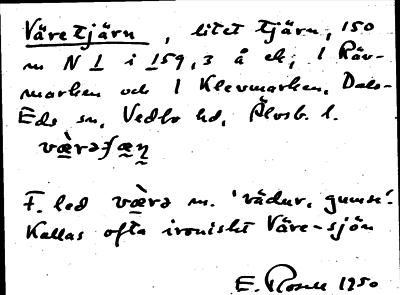 Väretjärn, litet tjärn, 150
m N 1 i 159,3 å ek, i Räv-
marken och i Klevmarken, Dals-
Eds sn, Vedbo hd, Älvsb. l.
væ̀rəʃæn
F. led væ̀rə m. 'vädur, gumse'.
Kallas ofta ironiskt Väre-sjön
E. Rosell 1950